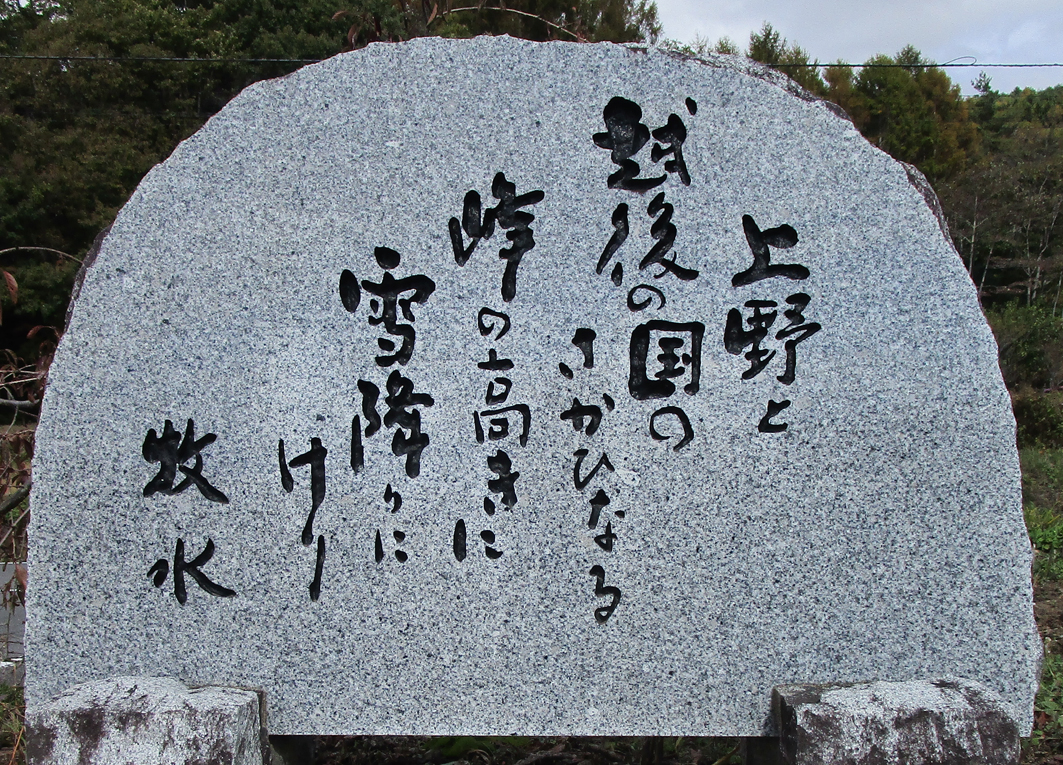 上野と
越後の国の
さかひなる
峰の高きに
雪降りに
けり
牧水